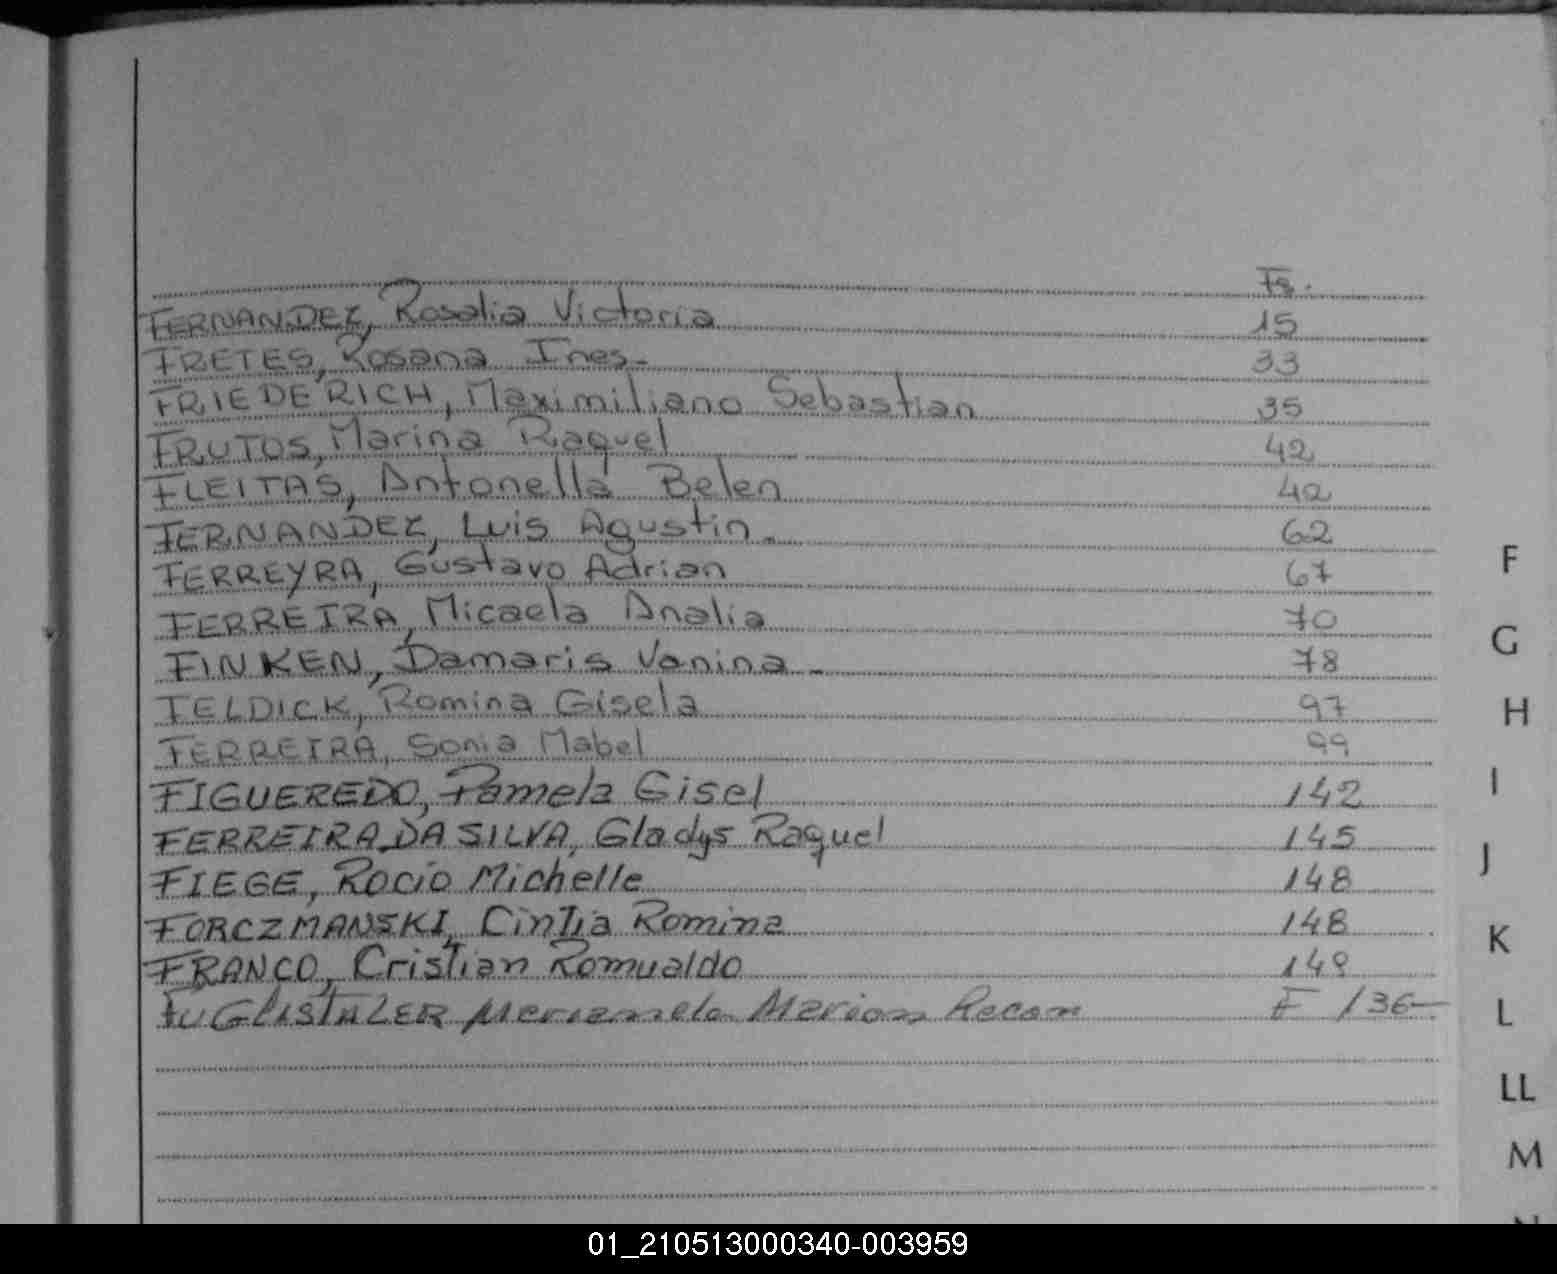 Fs.
FERNANDEZ, Rosalia Victoria 15
FRETES, Rosana Ines- 33
FRIEDERICH, Maximiliano Sebastian 35
FRUTOS, Marina Raquel 42
FLEITAS, Antonella Belen 42
FERNANDEZ, Luis Agustin. 62
FERREYRA, Gustavo Adrian 67
FERREIRA, Micaela Analia 70
FINKEN, Damaris Vanina - 78
FELDICK, Romina Gisela 97
FERREIRA, Sonia Mabel 99
FIGUEREDO, Pamela Gisel 142
FERREIRA DA SILVA, Gladys Raquel 145
FIEGE, Rocio Michelle 148
FORCZMANSKI, Cintia Romina 148
FRANCO, Cristian Romualdo 149
F 136-
F
G
H
I
J
K
L
LL
M
01_210513000340-003959